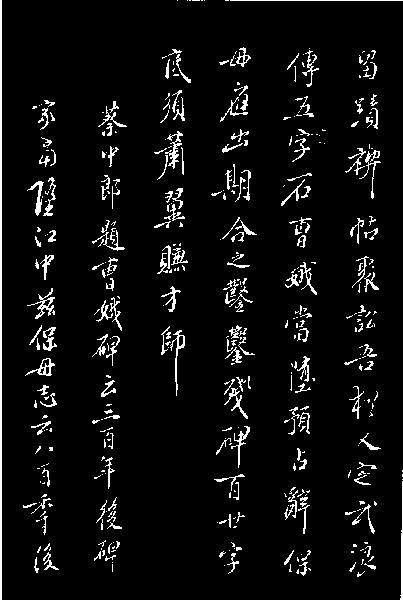 留蹟裨帖聚訟吾人定武浪
傳五字石曹娥當墮預占辭保
母庭出期合之鑿鑿殘碑百廿字
底須蕭翼賺才師
蔡中郎題曹娥碑云三百年後碑
冢當墮江中茲保母志云八百季後